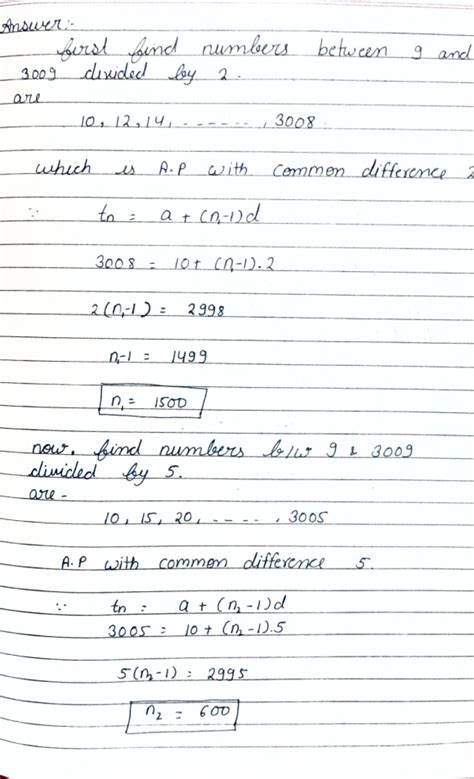 Answer:-
first find numbers between 9 and
3009 divided by 2.
are
10, 12, 14, - - - - - - , 3008
which is A.P with common difference 2
∵ tn = a + (n₁-1)d
3008 = 10 + (n₁-1).2
2(n₁-1) = 2998
n₁-1 = 1499
n₁ = 1500
now, find numbers b/w 9 & 3009
divided by 5.
are -
10, 15, 20, - - - - , 3005
A.P with common difference 5.
∵ tn = a + (n₂-1)d
3005 = 10 + (n₂-1).5
5(n₂-1) = 2995
n₂ = 600